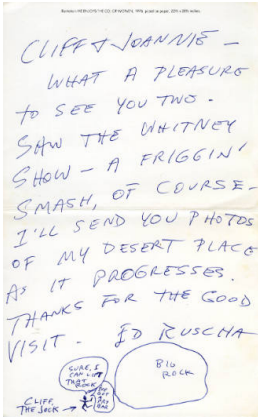 CLIFF & JOANNIE —
WHAT A PLEASURE
TO SEE YOU TWO.
SAW THE WHITNEY
SHOW — A FRIGGIN'
SMASH, OF COURSE —
I'LL SEND YOU PHOTOS
OF MY DESERT PLACE
AS IT PROGRESSES.
THANKS FOR THE GOOD
VISIT. ED RUSCHA
SURE, I
CAN LIFT
THAT ROCK
BIG
ROCK
CLIFF,
THE JOCK →